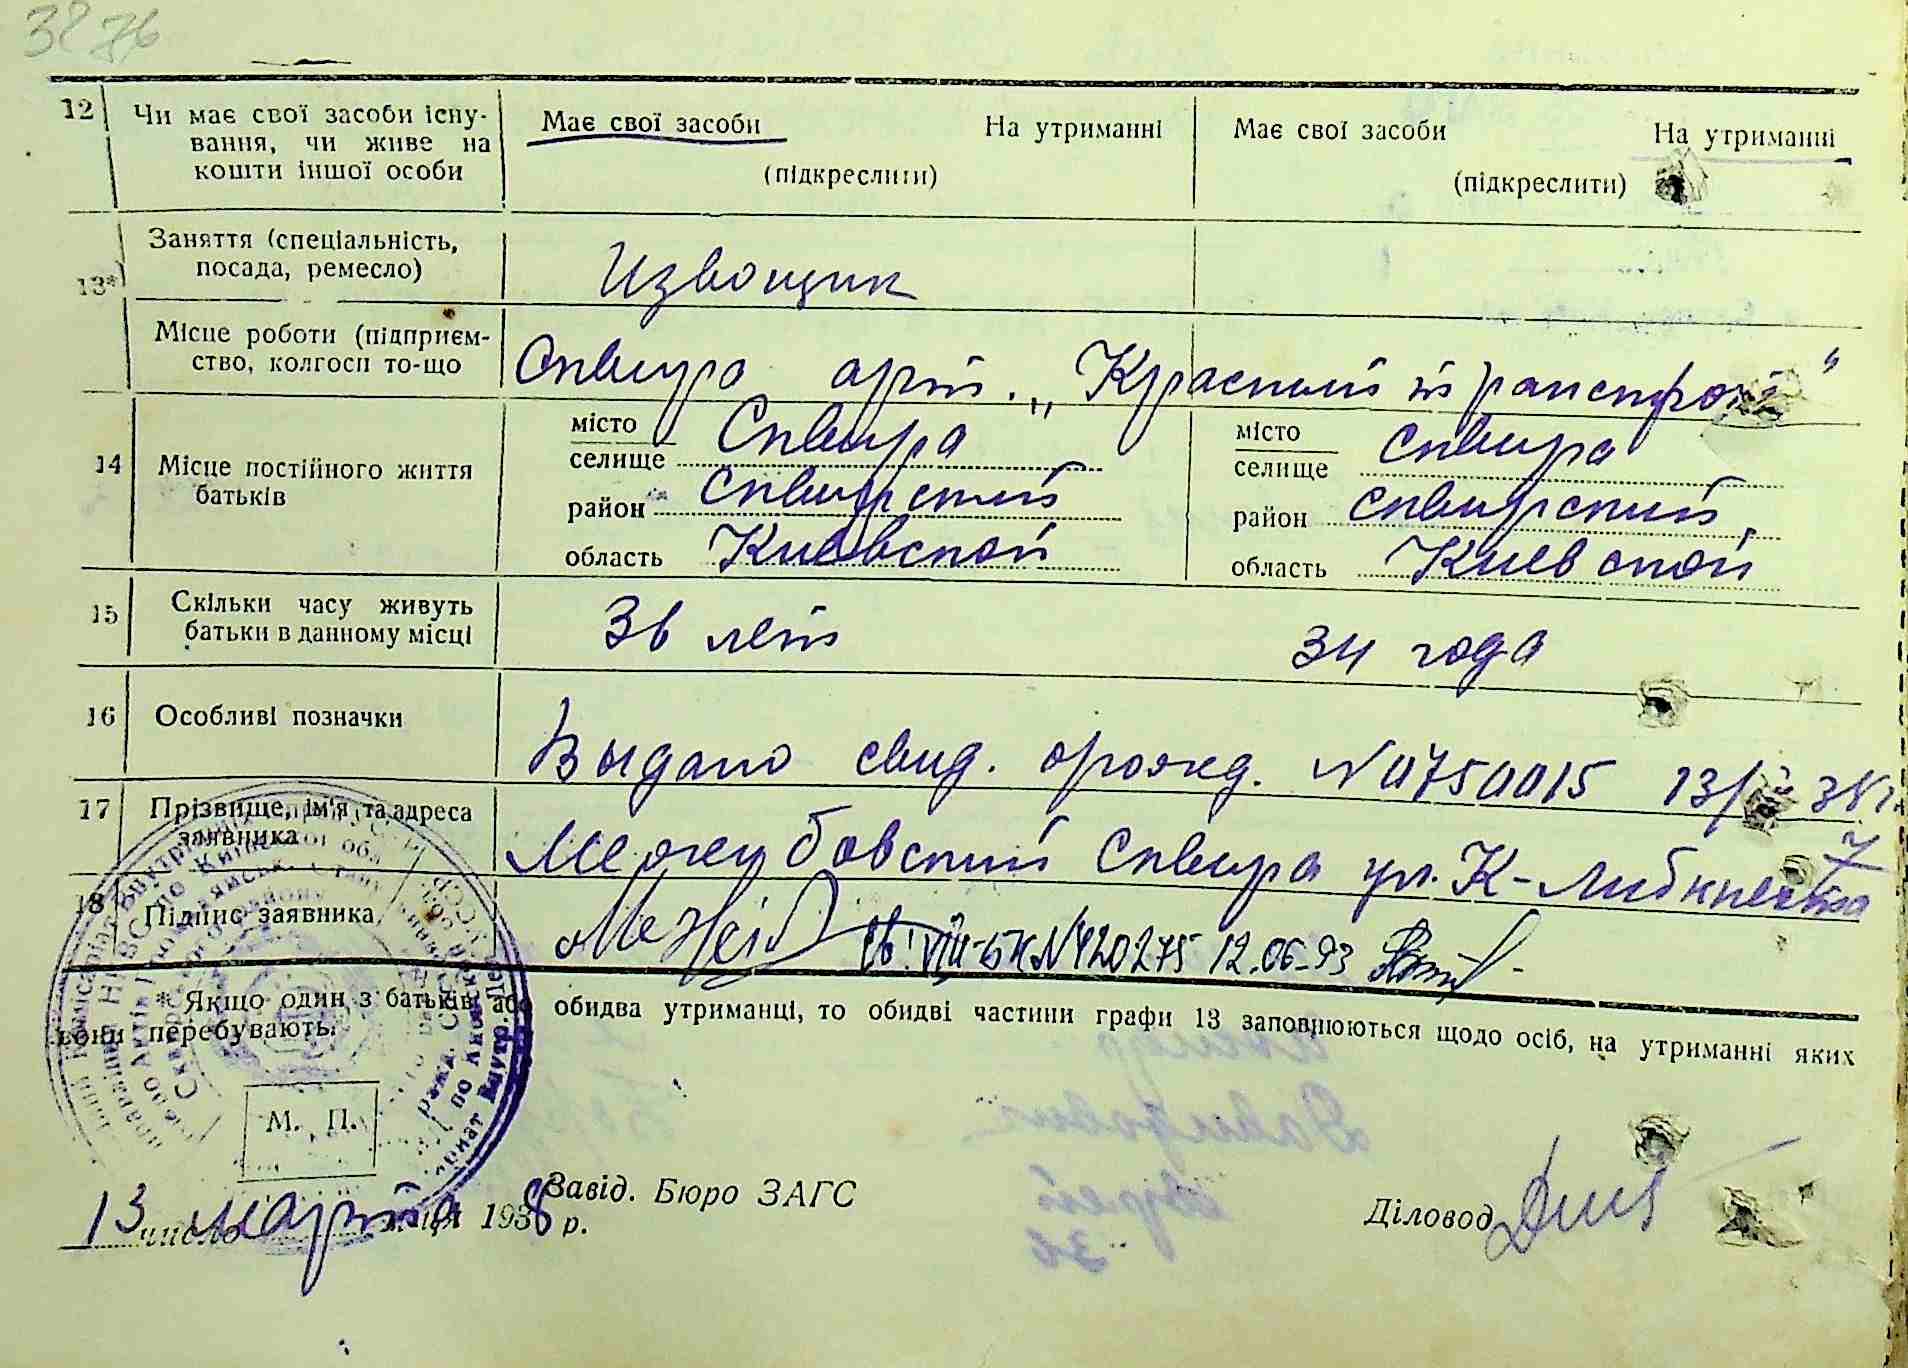 3876
12 Чи має свої засоби існу- Має свої засоби На утриманні Має свої засоби На утриманні
вання, чи живе на
кошти іншої особи (підкреслити) (підкреслити)
Заняття (спеціальність,
посада, ремесло) Извощик
13*)
Місце роботи (підприєм-
ство, колгосп то-що Сквира арт. „Красный транспорт“
місто Сквира місто Сквира
селище селище
14 Місце постійного життя
батьків район Сквирский район Сквирский
область Киевской область Киевской
15 Скільки часу живуть
батьки в данному місці 36 лет 34 года
16 Особливі позначки
Выдано свид. о рожд. № 0750015 13/ 38 г.
17 Прізвище, ім'я та адреса
заявника Межибовский Сквира ул. К-Либкнехта 7
18 Підпис заявника Межиб
Св. VIII-БК № 420275 12.06-93
* Якщо один з батьків або обидва утриманці, то обидві частини графи 13 заповнюються щодо осіб, на утриманні яких
вони перебувають.
М. П.
Завід. Бюро ЗАГС
Діловод
13 числа марта місяця 1938 р.